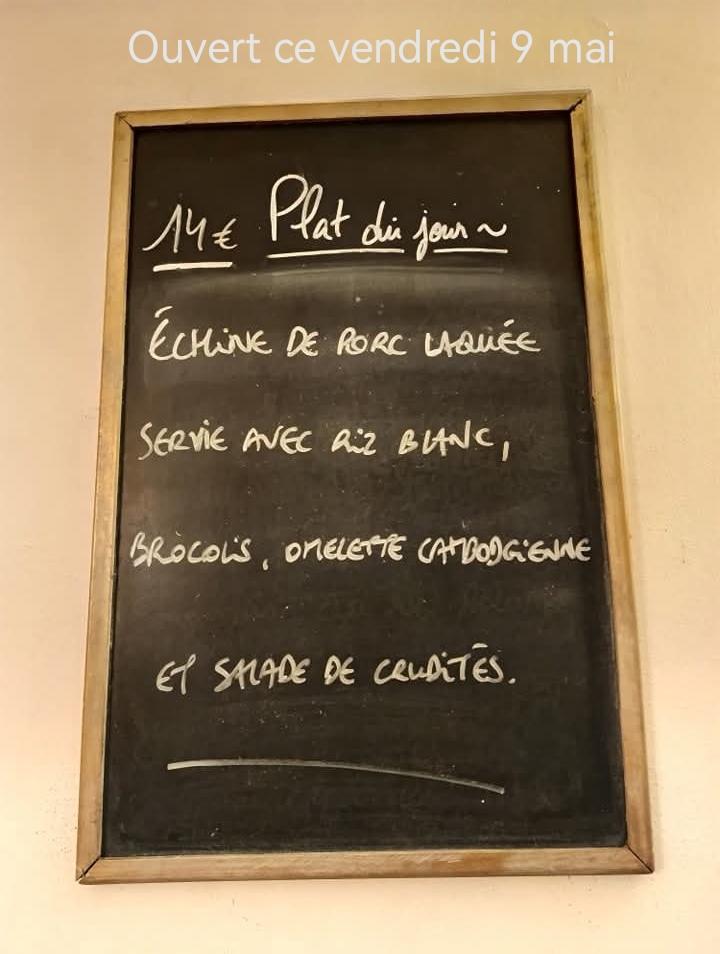 Ouvert ce vendredi 9 mai
14€ Plat du jour ~
ÉCHINE DE PORC LAQUÉE
SERVIE AVEC RIZ BLANC,
BROCOLIS, OMELETTE CAMBODGIENNE
ET SALADE DE CRUDITÉS.